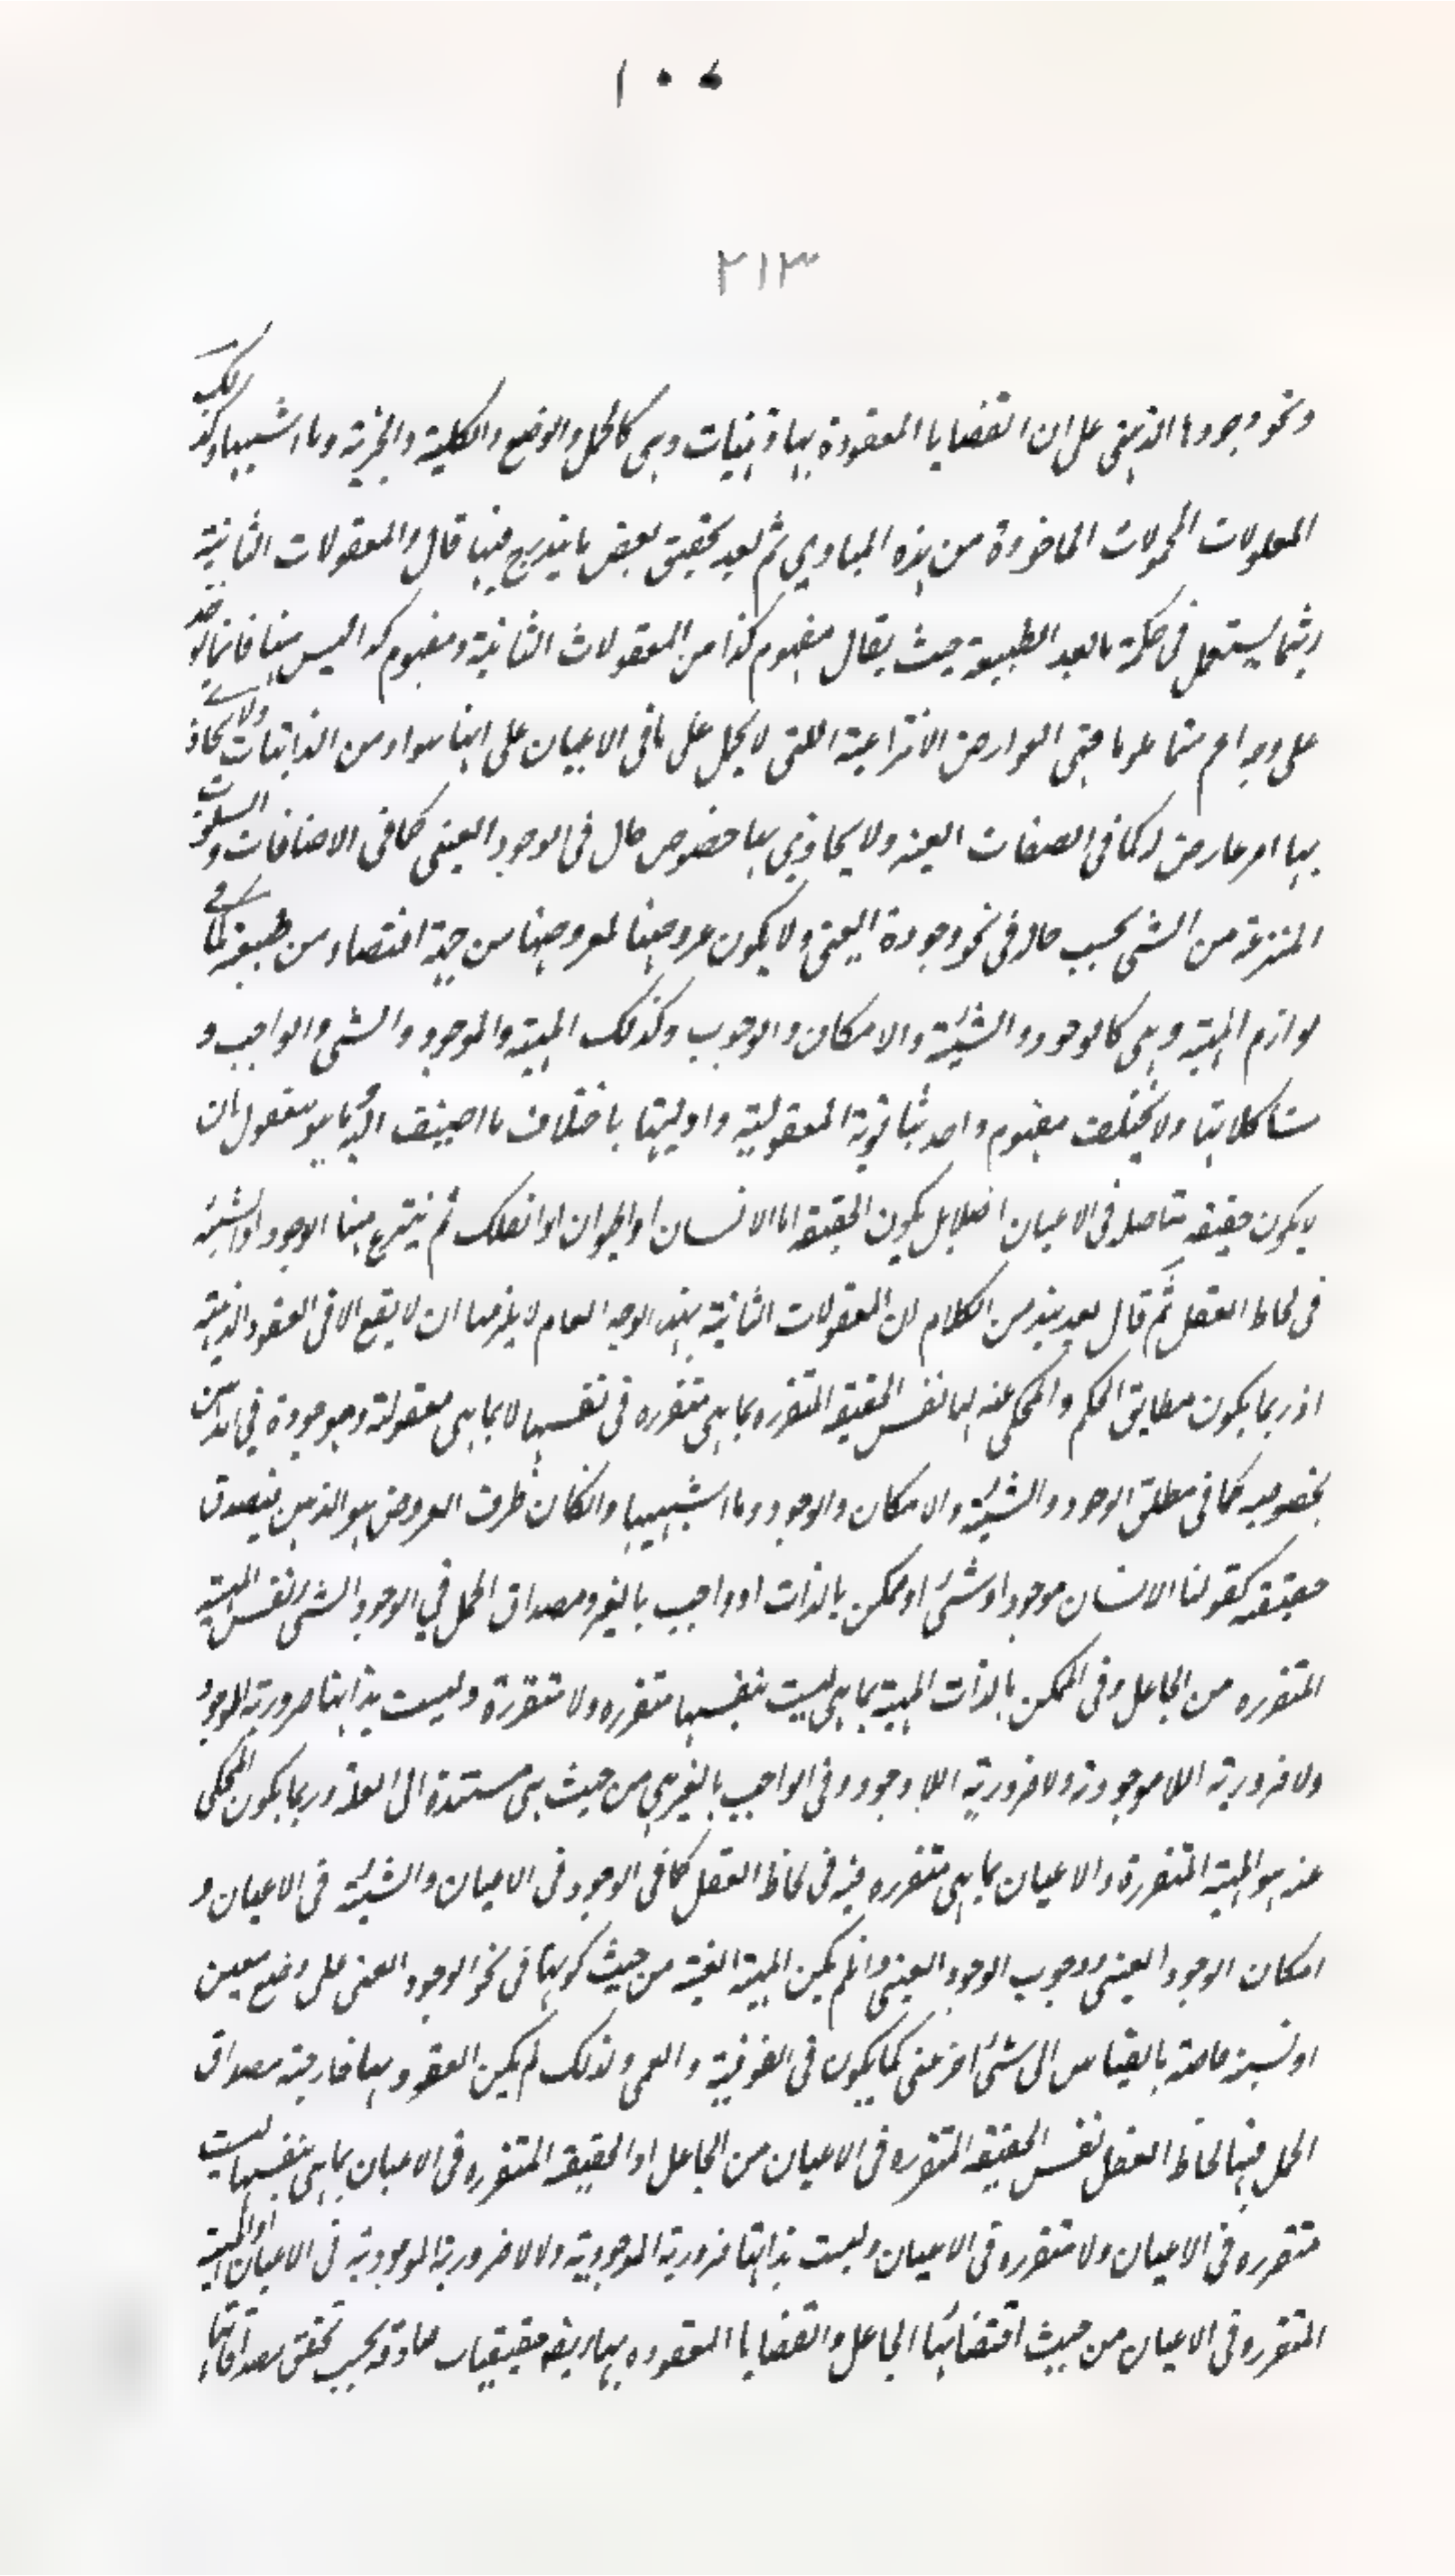 ۱۰۶
۲۱۳
ونحو وجودها الذهنى على ان القضايا المعقودة بها ذهنيات وهى كالحمل والوضع والكلية والجزئية وما اشبهها وكذلك
المعلولات المحمولات الماخوذة من هذه المبادي ثم بعد تحقيق بعض ما يندرج فيها قال والمعقولات الثانية
ربما يستعمل فى حكمة ما بعد الطبيعة حيث يقال مفهوم كذا من المعقولات الثانية ومفهوم كذا ليس منها فانما
على وجه اعم مما علوما هى العوارض الانتزاعية اللتى لا يحمل على ما فى الاعيان على انها سواء من الذاتيات ولا يحاذى
بها امر عارض له كما فى الصفات العينية ولا يحاذى بها خصوص حال فى الوجود العينى كما فى الاضافات والسلوب
المنتزعة من الشى بحسب حاله فى نحو وجوده العينى ولا يكون عروضها لمعروضها من جهة اقتضاء من طبيعة كما فى
لوازم المهية وهى كالوجود والشيئية والامكان والوجوب وكذلك المهية والموجود والشى والواجب و
مشاكلاتها ولا يختلف مفهوم واحد بثانوية المعقولية واوليتها باختلاف ما اضيف اليه ما هو معقول ثان
لا يكون حقيقة متاصلة فى الاعيان اصلا بل يكون الحقيقة اما الانسان او الحيوان او الفلك ثم ينتزع منها الوجود او الشيئية
فى لحاظ العقل ثم قال بعد نبذ من الكلام ان المعقولات الثانية بهذا الوجه العام لا يلزمها ان لا يقع الا فى العقود الذهنية
اذ ربما يكون مطابق الحكم والمحكى عنه بها نفس الحقيقة المتقررة بما هى متقرره فى نفسها لا بما هى معقولة وموجودة في الذهن
بخصوصه كما فى مطلق الوجود والشيئية والامكان والوجود وما اشبهها وانكان ظرف العروض هو الذهن فيصدق
حقيقية كقولنا الانسان موجود او شئ او ممكن بالذات او واجب بالغير ومصداق الحمل في الوجود الشى نفس المهية
المتقرره من الجاعل وفى الممكن بالذات المهية بما هى ليست بنفسها متقرره ولا لا متقررة وليست بذاتها ضرورية الوجود
ولا ضرورية اللا موجودة ولا ضرورية اللا وجود وفى الواجب بالغير هى من حيث هى مستندة الى العلة وربما يكون المحكى
عنه هو المهية المتقررة والاعيان بما هى متقرره فيه فى لحاظ العقل كما فى الوجود فى الاعيان والشيئية فى الاعيان و
امكان الوجود العينى ووجوب الوجود العينى وان لم يكن المهية العينية من حيث كونها فى نحو الوجود العينى على وضع معين
او نسبة خاصة بالقياس الى شئ اخر عينى كما يكون فى الفوقية والعمى ولذلك لم يكن العقود بها خارجية مصداق
الحمل فيها لحاظ العقل نفس الحقيقة المتقرره فى الاعيان من الجاعل او الحقيقة المتقرره فى الاعيان بما هى بنفسها ليست
متقرره فى الاعيان ولا متقرره فى الاعيان وليست بذاتها ضرورية الموجودية ولا لا ضرورية الموجودية فى الاعيان او المهية
المتقرره فى الاعيان من حيث اقتضائها الجاعل والقضايا المعقوده بها حقيقيات صادقة بحسب تحقق مصداقاتها